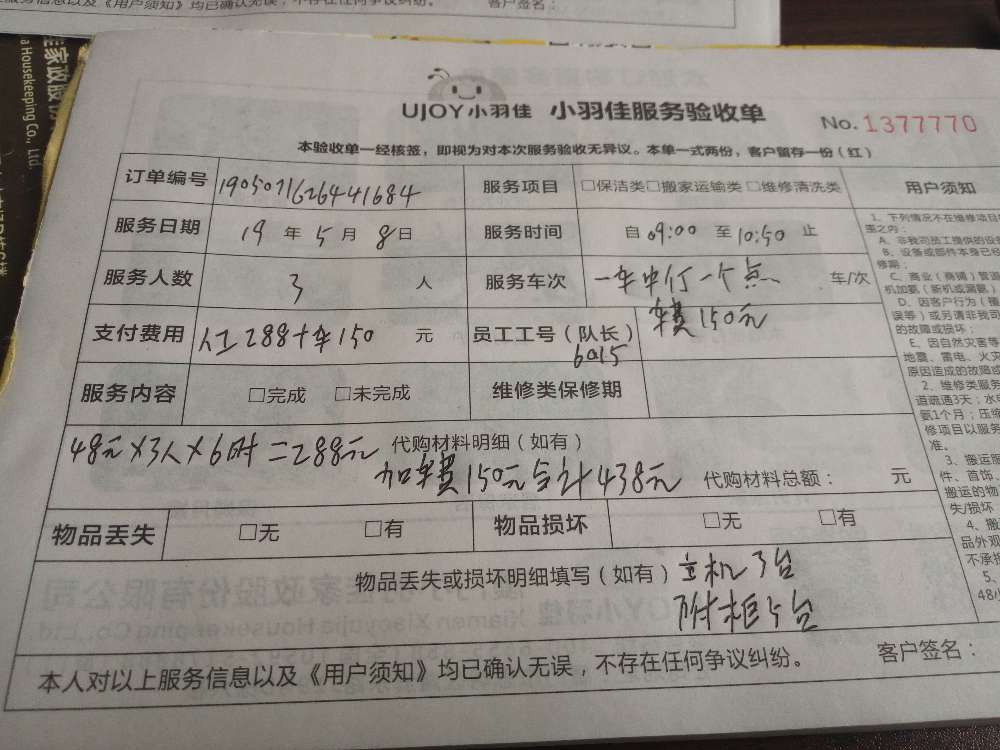 服务信息以及《用户须知》均已确认无误，不存在任何争议纠纷。 客户签名：
佳家政服
a Housekeeping Co., Ltd
UJOY小羽佳 小羽佳服务验收单 No. 1377770
本验收单一经核签，即视为对本次服务验收无异议。本单一式两份，客户留存一份（红）
订单编号 1905071626441684 服务项目 □保洁类□搬家运输类□维修清洗类 用户须知
服务日期 19 年 5 月 8 日 服务时间 自 09:00 至 10:50 止
服务人数 3 人 服务车次 一车中行一个点 车/次
车费150元
支付费用 人工288+车150 元 员工工号（队长） 6015
服务内容 □完成 □未完成 维修类保修期
48元×3人×6时=288元 代购材料明细（如有）
加车费150元合计438元 代购材料总额： 元
物品丢失 □无 □有 物品损坏 □无 □有
物品丢失或损坏明细填写（如有）主机3台
附柜5台
本人对以上服务信息以及《用户须知》均已确认无误，不存在任何争议纠纷。 客户签名：
1、下列情况不在维修项目
围之内：
A、非我司员工提供的设
B、设备或部件本身已经
修期；
C、商业（商铺）普通
机加氨（新机或漏氨）
D、因客户行为（擅
误等）或另请非我司
的故障或损坏；
E、因自然灾害等
地震、雷电、火灾
原因造成的故障或
2、维修类服务
道疏通3天；水电
氨1个月；压缩
修项目以服务
准。
3、搬运服
件、首饰、
搬运的物
失/损坏
4、搬
品外观
不承担
5、
48小